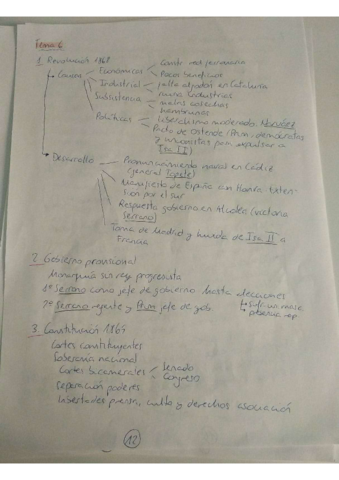 Tema 6
1. Revolución 1968
Causas
Económicas
Const. red ferroviaria
Pocos beneficios
Industrial
falta algodón en Cataluña
ruina industrias
Subsistencia
malas cosechas
hambrunas
Políticas
liberalismo moderado. Narváez
Pacto de Ostende (Prim, demócratas
y unionistas para expulsar a
Isa II)
Desarrollo
Pronunciamiento naval en Cádiz
(general Topete)
Manifiesto de España con Honra. Exten-
sión por el sur
Respuesta gobierno en Alcolea (victoria
Serrano)
Toma de Madrid y huida de Isa II a
Francia
2. Gobierno provisional
Monarquía sin rey progresista
1º Serrano como jefe de gobierno hasta elecciones
sufr. univ. masc.
presencia rep
2º Serrano regente y Prim jefe de gob.
3. Constitución 1869
Cortes constituyentes
Soberanía nacional
Cortes bicamerales
Senado
Congreso
Separación poderes
Libertades prensa, culto y derechos asociación
12